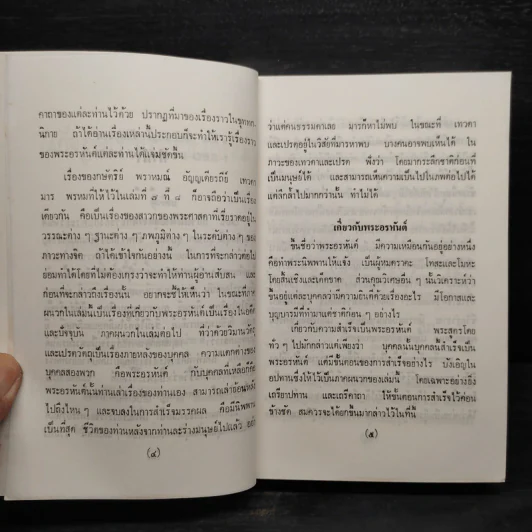 คาถาของแต่ละท่านไว้ด้วย ปรากฏที่มาของเรื่องราวในขุททก-
นิกาย ถ้าได้อ่านเรื่องเหล่านี้ประกอบก็จะทำให้เรารู้เรื่องราว
ของพระอรหันต์แต่ละท่านได้แจ่มชัดขึ้น
เรื่องของกษัตริย์ พราหมณ์ อัญญเดียรถีย์ เทวดา
มาร พรหมที่ให้ไว้ในเล่มที่ ๗ ที่ ๘ ก็อาจถือว่าเป็นเรื่อง
เดียวกัน คือเป็นเรื่องของสาวกของพระศาสดาที่เรียงรายอยู่ใน
วรรณะต่าง ๆ ฐานะต่าง ๆ ภพภูมิต่าง ๆ ในระดับต่าง ๆ ของ
ภาวะทางจิต ถ้าได้เข้าใจกันอย่างนี้ ในการที่จะกล่าวต่อไป
ย่อมทำได้โดยที่ไม่ต้องเกรงว่าจะทำให้ท่านผู้อ่านสับสน และ
ก่อนที่จะกล่าวถึงเรื่องนั้น อยากจะชี้ให้เห็นว่า ในขณะที่ภาค-
ผนวกในเล่มนี้เป็นเรื่องที่เกี่ยวกับพระอรหันต์เป็นเรื่องในอดีต
และปัจจุบัน ภาคผนวกในเล่มต่อไป ที่ว่าด้วยวิมานวัตถุ
และเปรตวัตถุเป็นเรื่องภายหลังของบุคคล ความแตกต่างของ
บุคคลสองพวก คือพระอรหันต์ กับบุคคลที่เหลือก็คือ
พระอรหันต์นั้นท่านเล่าเรื่องของท่านเอง สามารถเล่าย้อนหลัง
ไปถึงไหน ๆ และจบลงในการสำเร็จมรรคผล คือมีนิพพาน
เป็นที่สุด ชีวิตของท่านหลังจากท่านละร่างมนุษย์ไปแล้ว
(๔)
ว่าแต่คนธรรมดาเลย มารก็หาไม่พบ ในขณะที่ เทวดา
และเปรตอยู่ในวิสัยที่มารหาพบ บางคนอาจพบเห็นได้ ใน
ภาวะของเทวดาและเปรต พึงว่า โดยมากระลึกชาติก่อนที่
เป็นมนุษย์ได้ และสามารถเห็นความเป็นไปในภพต่อไปได้
แต่ลึกล้ำไปมากกว่านั้น ทำไม่ได้
เกี่ยวกับพระอรหันต์
ขึ้นชื่อว่าพระอรหันต์ มีความเหมือนกันอยู่อย่างหนึ่ง
คือทำพระนิพพานให้แจ้ง เป็นผู้หมดราคะ โทสะและโมหะ
โดยสิ้นเชิงและเด็ดขาด ส่วนคุณวิเศษอื่น ๆ นั้นวิเคราะห์ว่า
ขึ้นอยู่แต่ละบุคคลว่าความยินดีด้วยเรื่องอะไร มีโอกาสและ
บุญบารมีที่ทำมาแต่ชาติก่อน ๆ อย่างไร
เกี่ยวกับความสำเร็จเป็นพระอรหันต์ พระสูตรโดย
ทั่ว ๆ ไปมักกล่าวแต่เพียงว่า บุคคลนั้นบุคคลนี้สำเร็จเป็น
พระอรหันต์ แต่มีขั้นตอนของการสำเร็จอย่างไร บังเอิญใน
อปทานซึ่งให้ไว้เป็นภาคผนวกของเล่มนี้ โดยเฉพาะอย่างยิ่ง
เถรียาปทาน และเถรีคาถา ให้ขั้นตอนการสำเร็จไว้ค่อน
ข้างชัด สมควรจะได้ยกขึ้นมากล่าวไว้ในที่นี้
(๕)